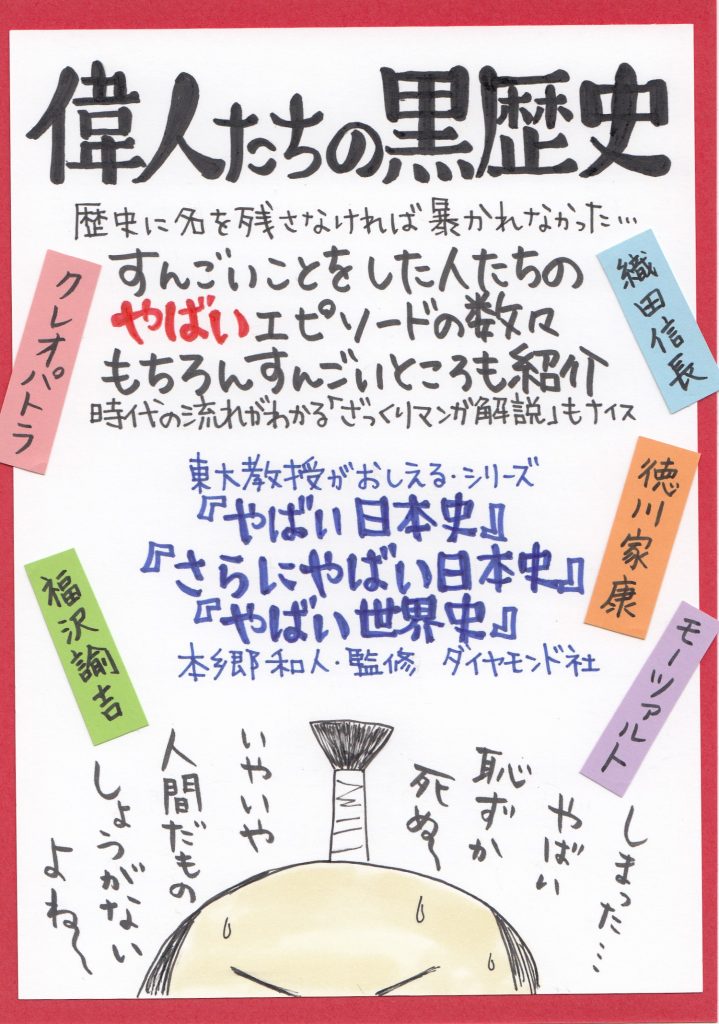 偉人たちの黒歴史
歴史に名を残さなければ暴かれなかった…
すんごいことをした人たちの
やばいエピソードの数々
もちろんすんごいところも紹介
時代の流れがわかる「ざっくりマンガ解説」もナイス
クレオパトラ
織田信長
徳川家康
福沢諭吉
モーツァルト
東大教授がおしえる・シリーズ
『やばい日本史』
『さらにやばい日本史』
『やばい世界史』
本郷和人・監修 ダイヤモンド社
しまった…
やばい
恥ずか
死ぬ〜
いやいや
人間だもの
しょうがない
よね〜